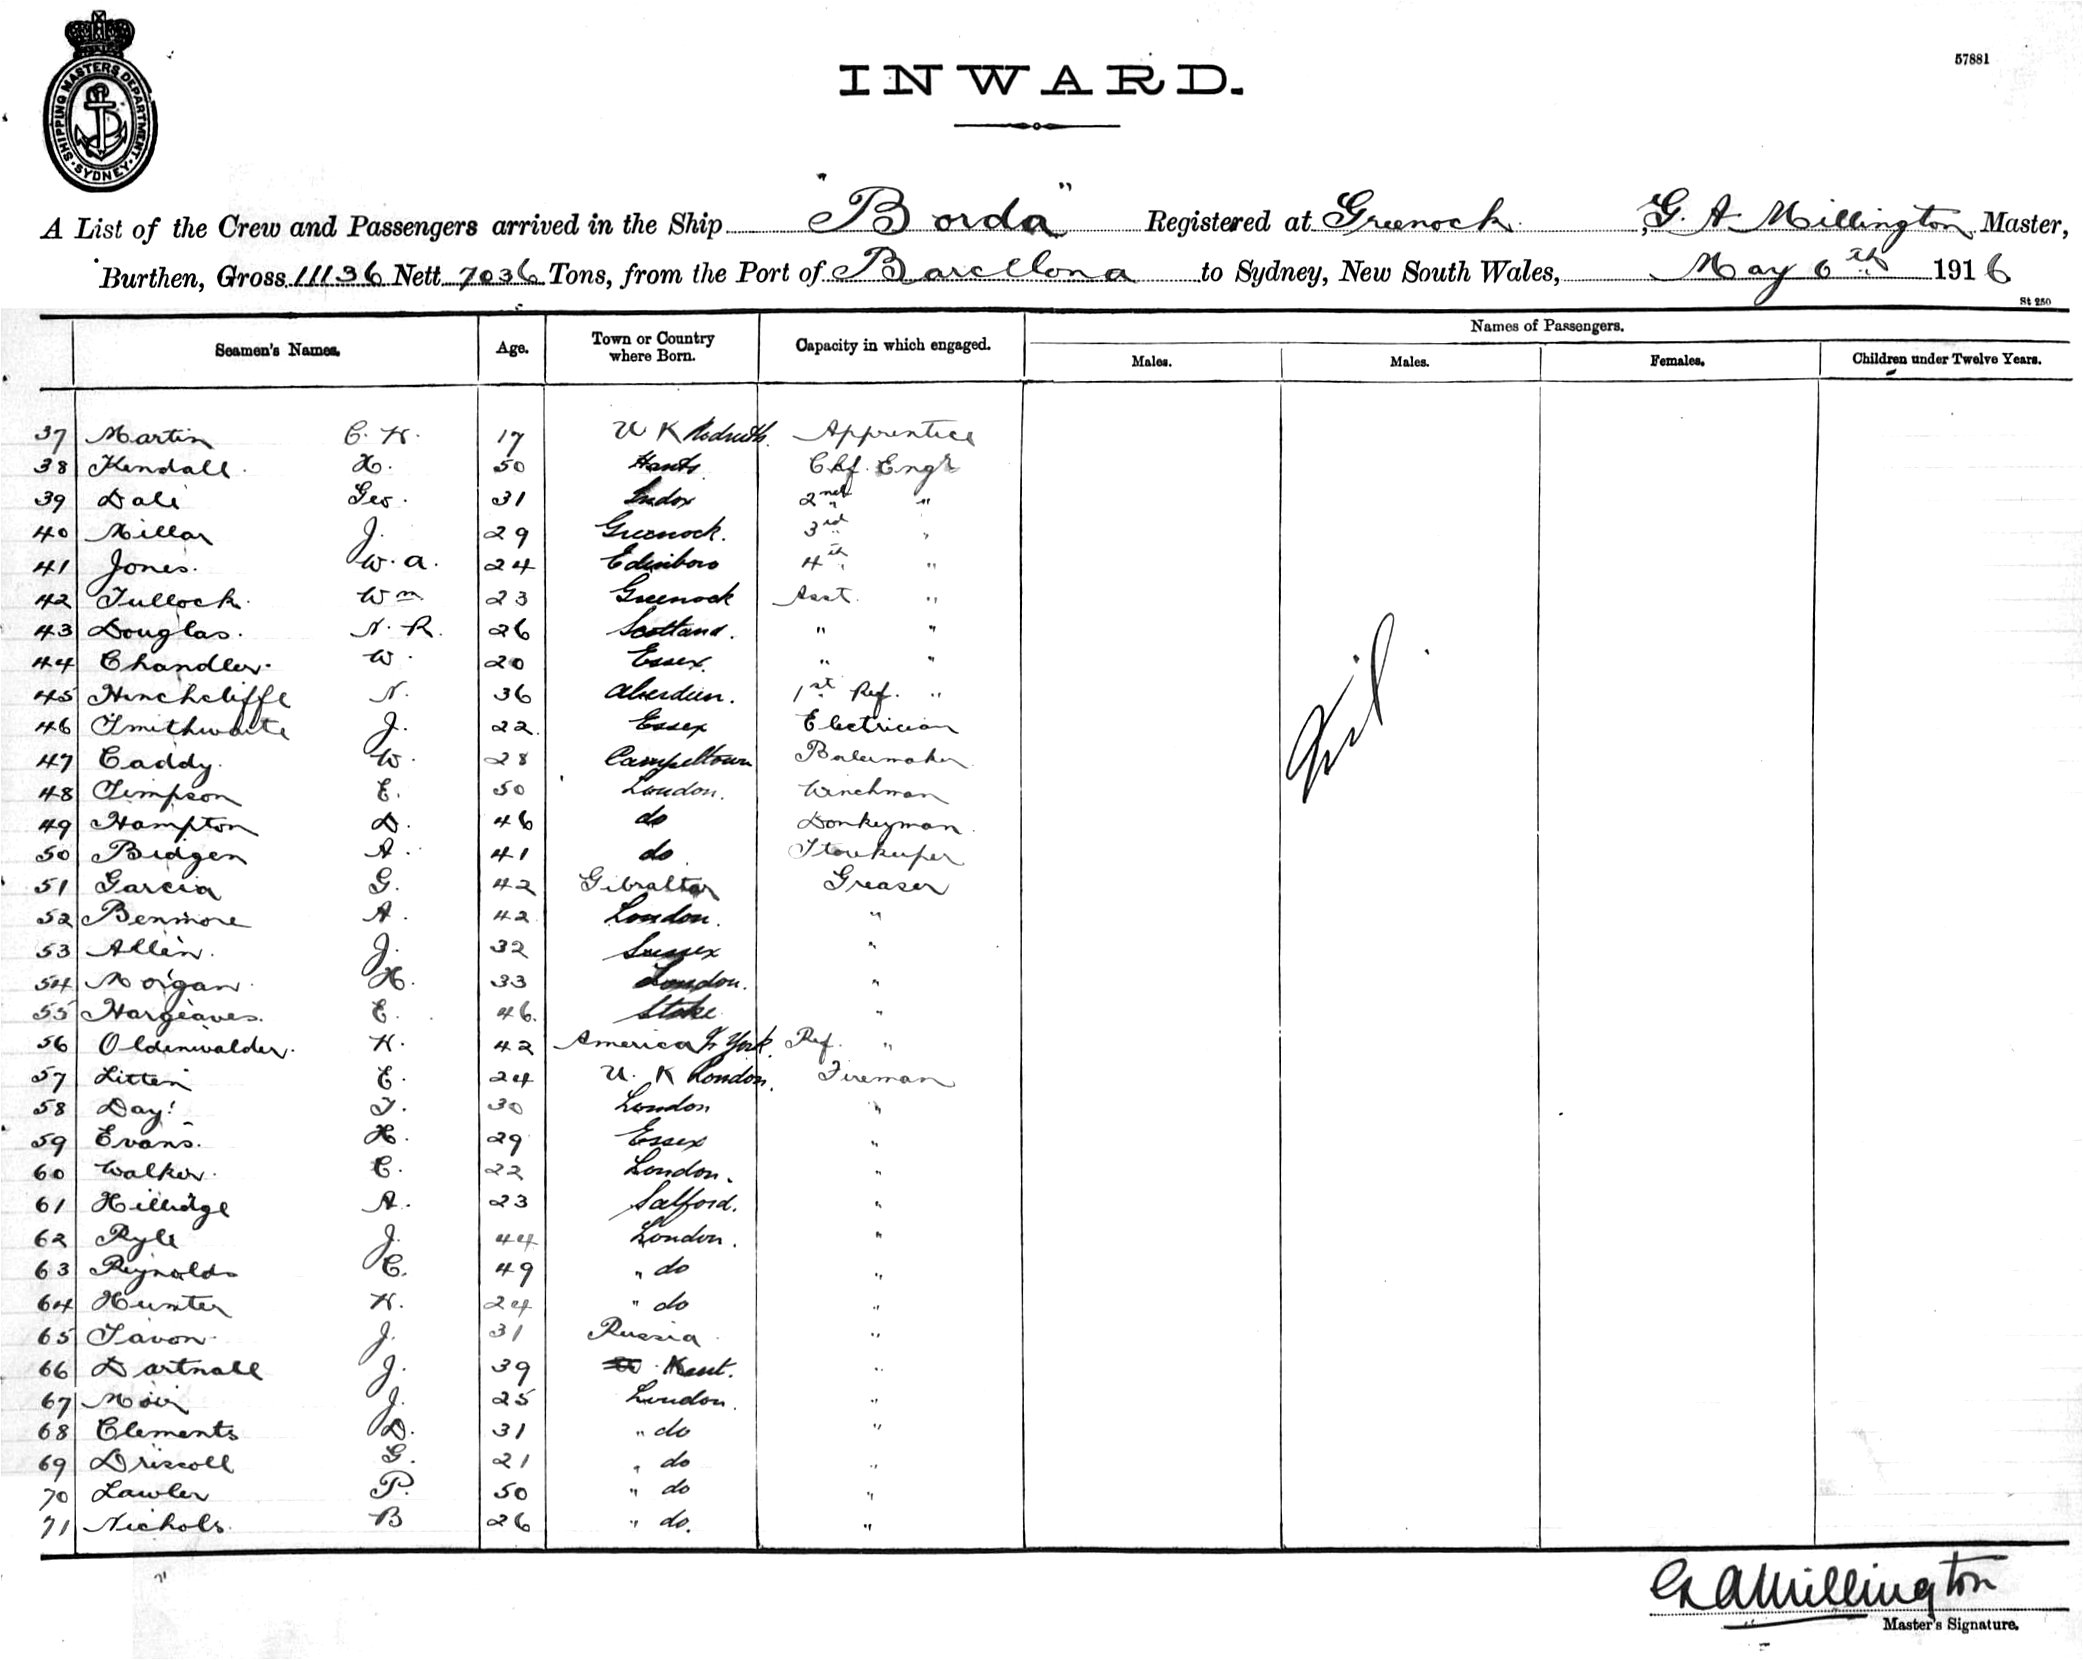 SHIPPING MASTERS DEPARTMENT · SYDNEY ·
INWARD.
57881
A List of the Crew and Passengers arrived in the Ship "Borda" Registered at Greenock. G. A Millington Master,
Burthen, Gross 11136 Nett 7036 Tons, from the Port of Barcellona to Sydney, New South Wales, May 6th 1916
St 250
Seamen's Names. Age. Town or Country where Born. Capacity in which engaged. Names of Passengers.
Males. Males. Females. Children under Twelve Years.
37 Martin C. H. 17 U K Redruth. Apprentice
38 Kendall. H. 50 Hants Chf. Engr
39 Dali Geo. 31 2nd "
40 Millar J. 29 Greenock. 3rd "
41 Jones. W. A. 24 Edinboro 4th "
42 Tullock. Wm 23 Greenock Asst. "
43 Douglas. N. R. 26 Scotland. " "
44 Chandler. W. 20 Essex. " "
45 Hinchcliffe N. 36 Aberdeen. 1st Ref. "
46 Smithwaite J. 22 Essex Electrician
47 Caddy. W. 28 Campeltown Boilermaker
48 Simpson E. 50 London. Winchman
49 Hampton D. 46 do Donkeyman.
50 Bidgen A. 41 do Storekeeper
51 Garcia G. 42 Gibraltar Greaser
52 Benmore A. 42 London. "
53 Allen. J. 32 Sussex "
54 Morgan. H. 33 London. "
55 Hargreaves. E. 46. Stoke "
56 Oldenwalder. H. 42 America N York. Ref. "
57 Litten E. 24 U. K London. Fireman
58 Day. T. 30 London "
59 Evans. H. 29 Essex "
60 Walker. C. 22 London. "
61 Hillidge A. 23 Salford. "
62 Ryle J. 44 London. "
63 Reynolds C. 49 " do "
64 Hunter H. 24 " do "
65 Savon. J. 31 Russia "
66 Dartnall J. 39 Kent. "
67 Moir J. 25 London. "
68 Clements D. 31 " do "
69 Driscoll G. 21 " do "
70 Lawler P. 50 " do "
71 Nichols. B 26 " do. "
Nil.
G A Millington
Master's Signature.